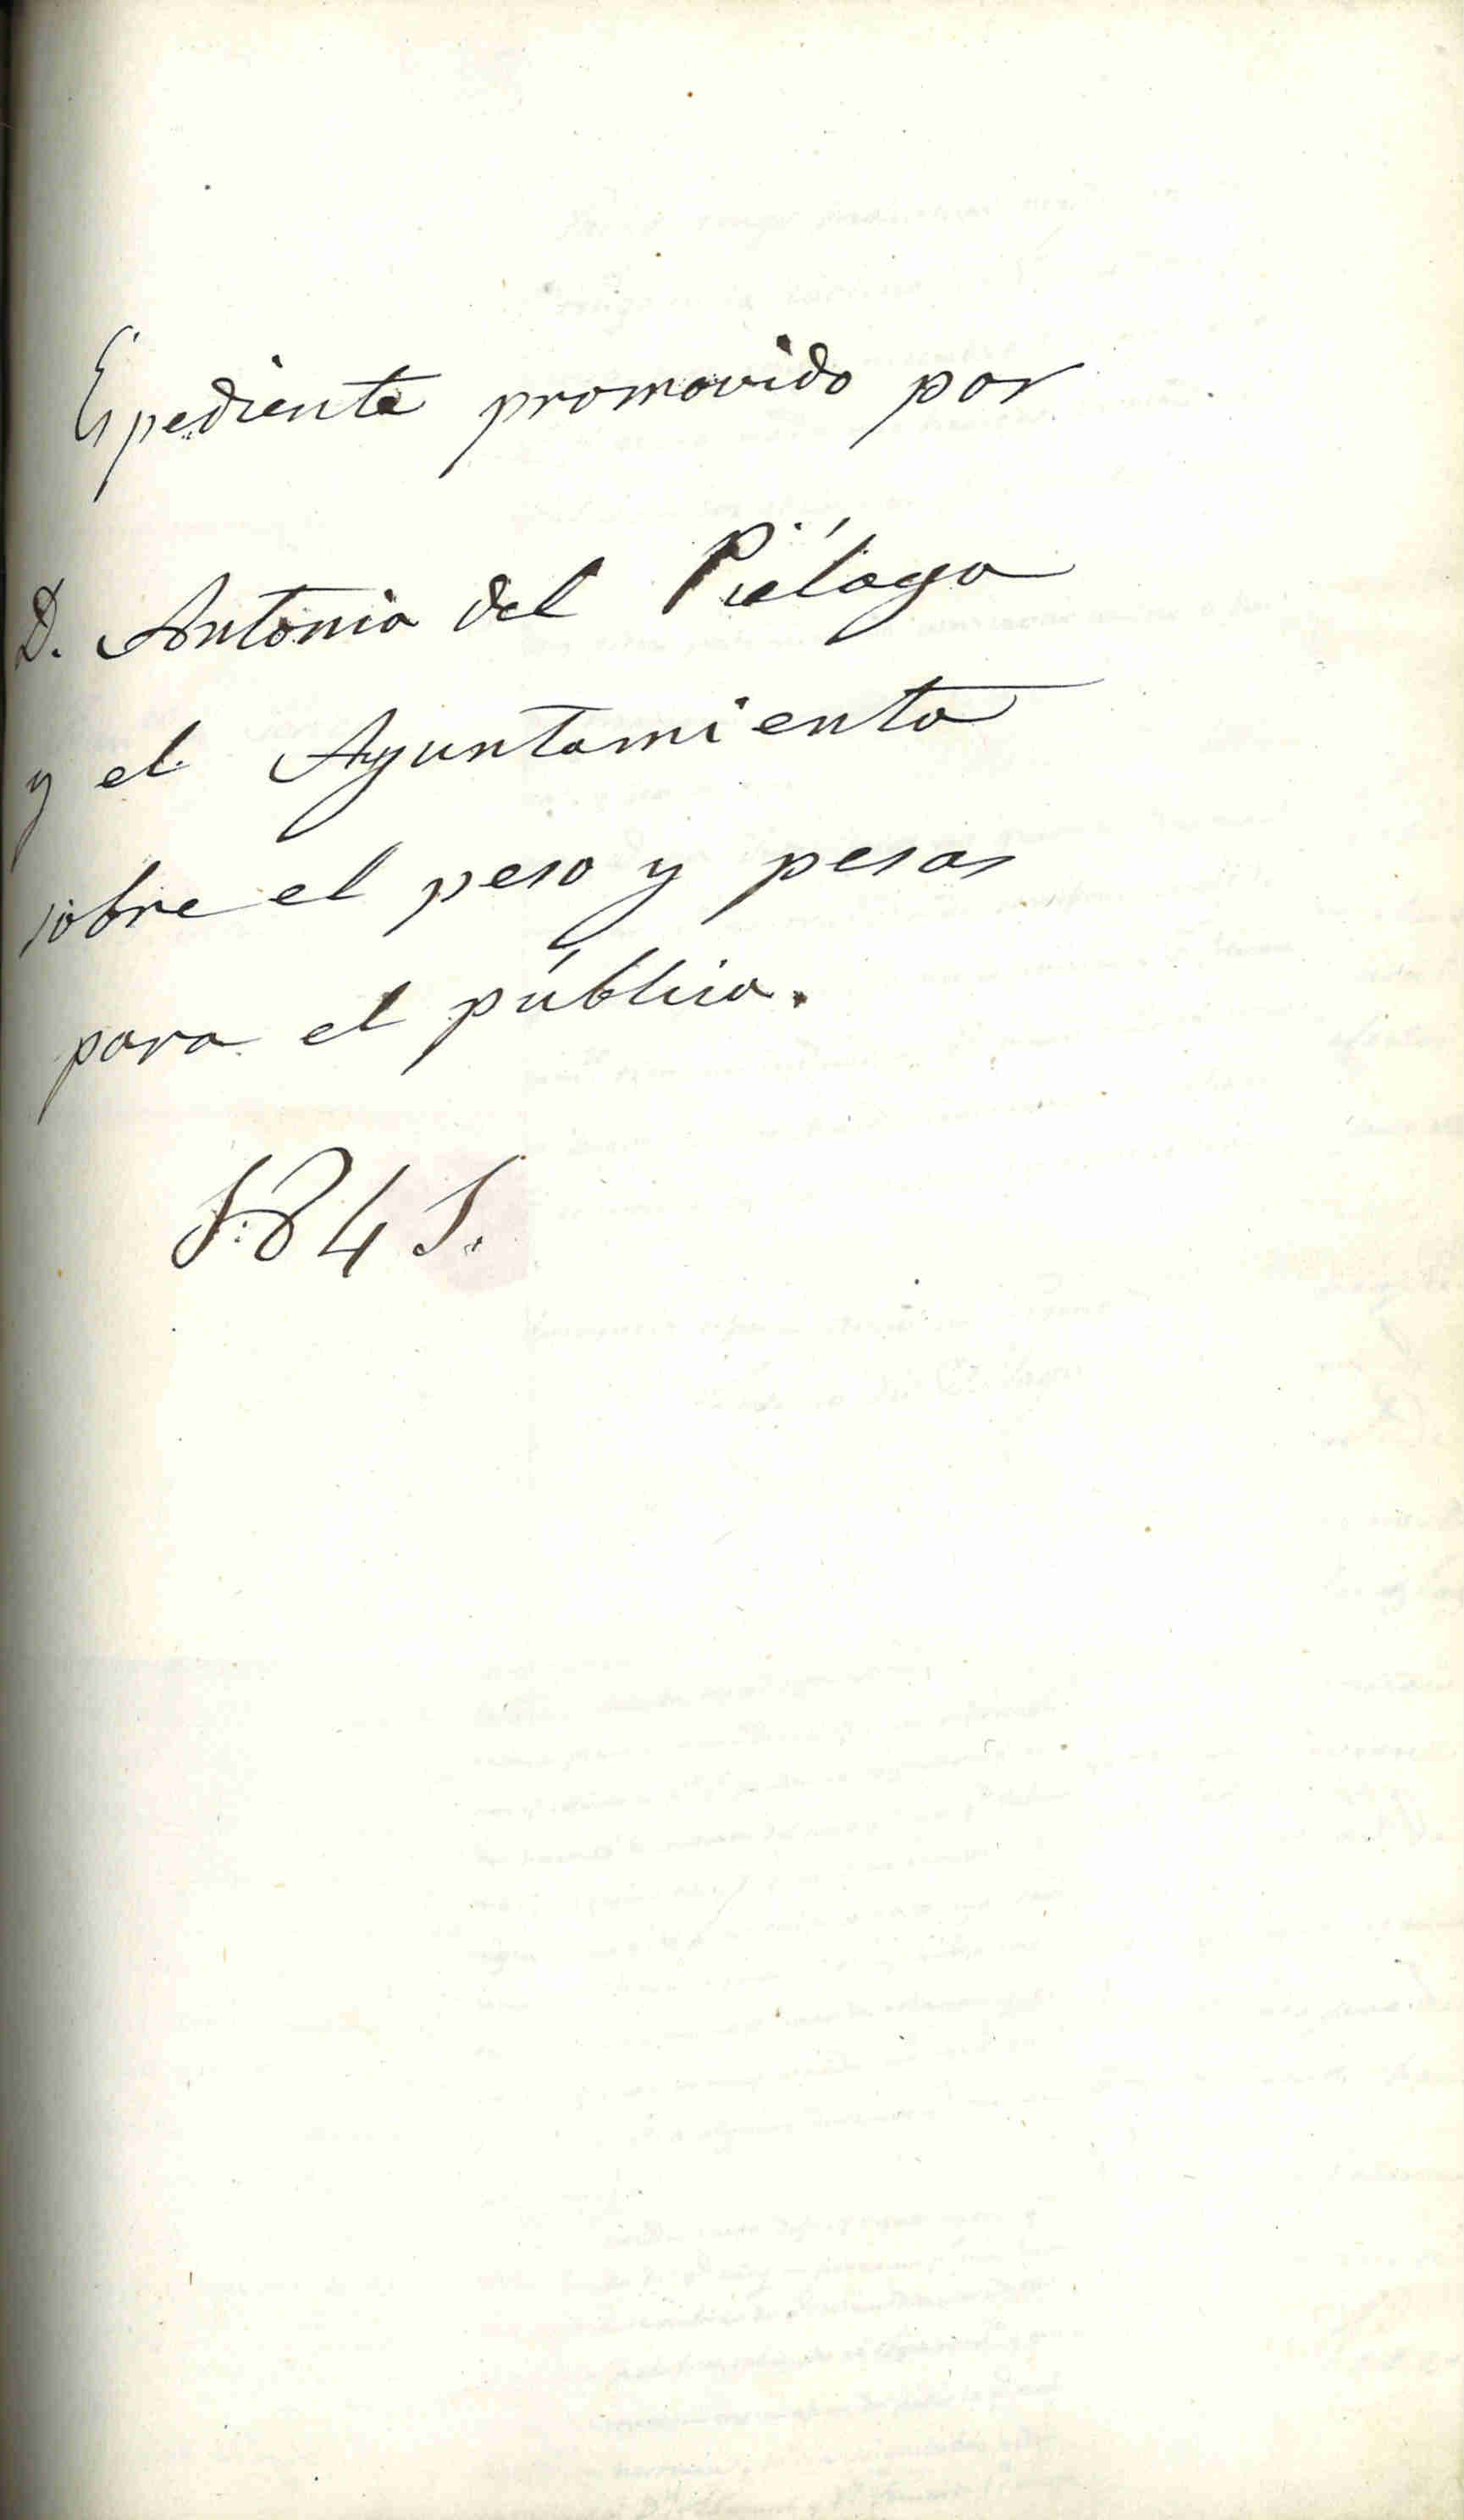 Espediente promovido por
D. Antonio del Piélago
y el Ayuntamiento
sobre el peso y pesas
para el público.
1845.